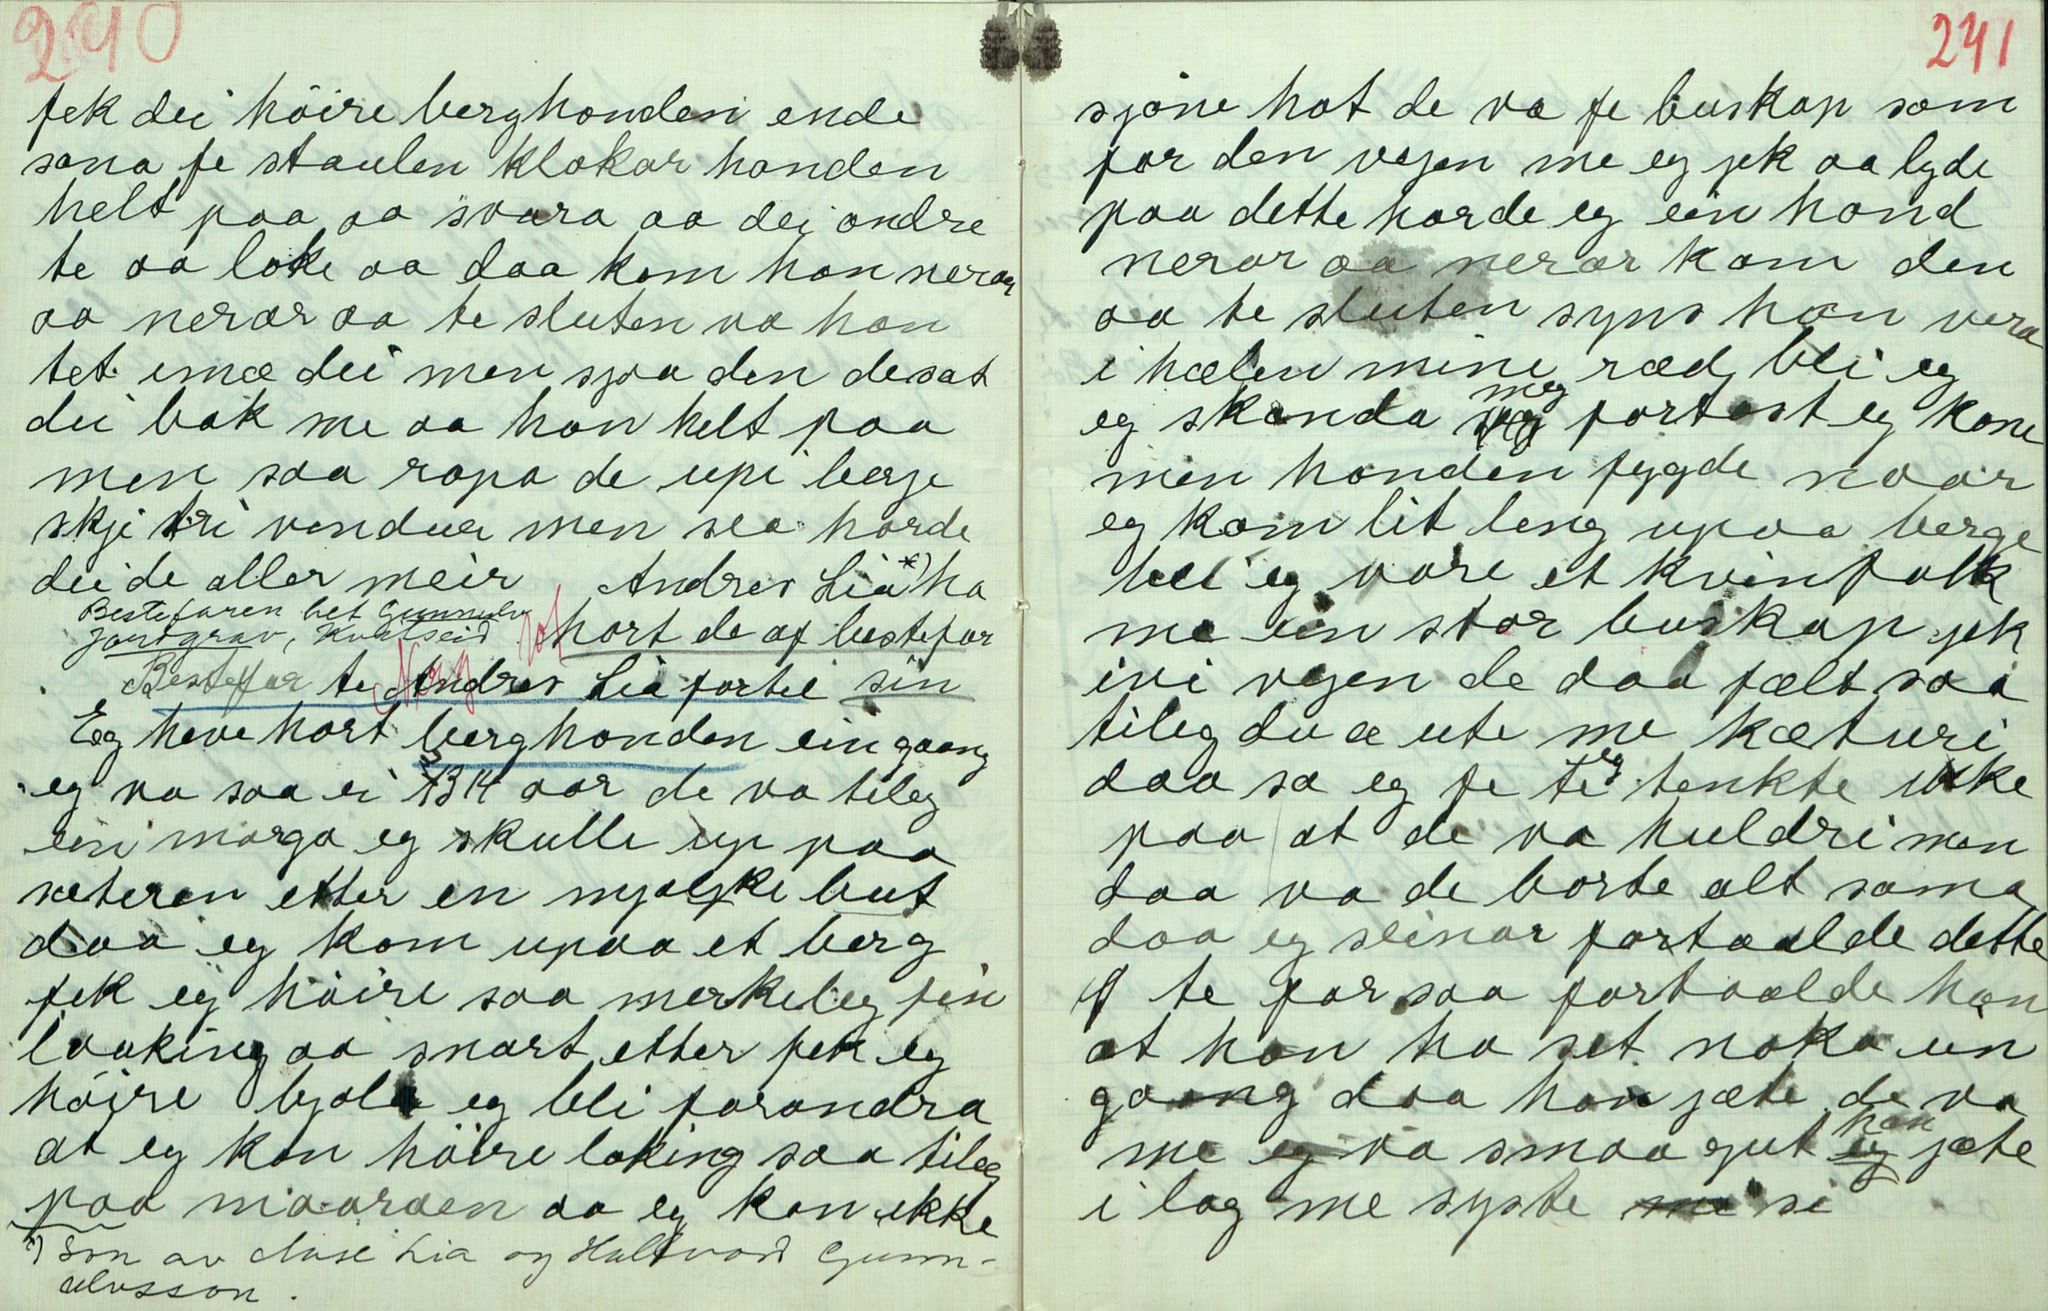 290
fek dei höire berghonden ende
sona fe staulen klokar honden
helt paa aa svara aa dei andre
te aa loke aa daa kom han nerar
aa nerar aa te sluten va han
tet imæ dei men sjaa den desat
dei bak me aa han helt paa
men saa ropa de upi berje
skje tri vendur men sea horde
dei de aller meir Andres Lia *) ha
Bestefaren het Gunnulv
Jordgrav, Kvitseid
hort de af bestefar
Bestefar te Andres Lia fortel sin
Eg heve hort berghonden ein gaang
eg va saa ei 13 14 aar de va tileg
ein morga eg skulle up paa
sæteren etter en mjølke but
daa eg kom upaa et berg
fek eg höire saa merkeleg fin
laaking aa snart etter fek eg
höire bjola eg blei forandra
at eg kan höire loking saa tileg
paa maaraaen aa eg kan ikke
*) Son av Aase Lia og Hallvard Gunn-
ulvsson.
291
sjøne hot de va fe buskap som
for den vejen me eg jek aa lyde
paa dette horde eg ein hond
nerar aa nerar kom den
aa te sluten syns han vera
i hælen mine ræd blei eg
eg skonda meg fortast eg kone
men honden fygde naar
eg kom lit leng upaa berge
blei eg vare et kvinfolk
me ein stor buskap jek
ivi vejen de daa fælt saa
tileg du æ ute me kæturi
daa sa eg fe eg tenkte ikke
paa at de va huldri men
daa va de borte alt sama
daa eg seinar fortaalde dette
te far saa fortaalde han
at han ha set noko ein
gaang daa han jæte de va
me eg va smaa gut han jæte
i lag me syste si